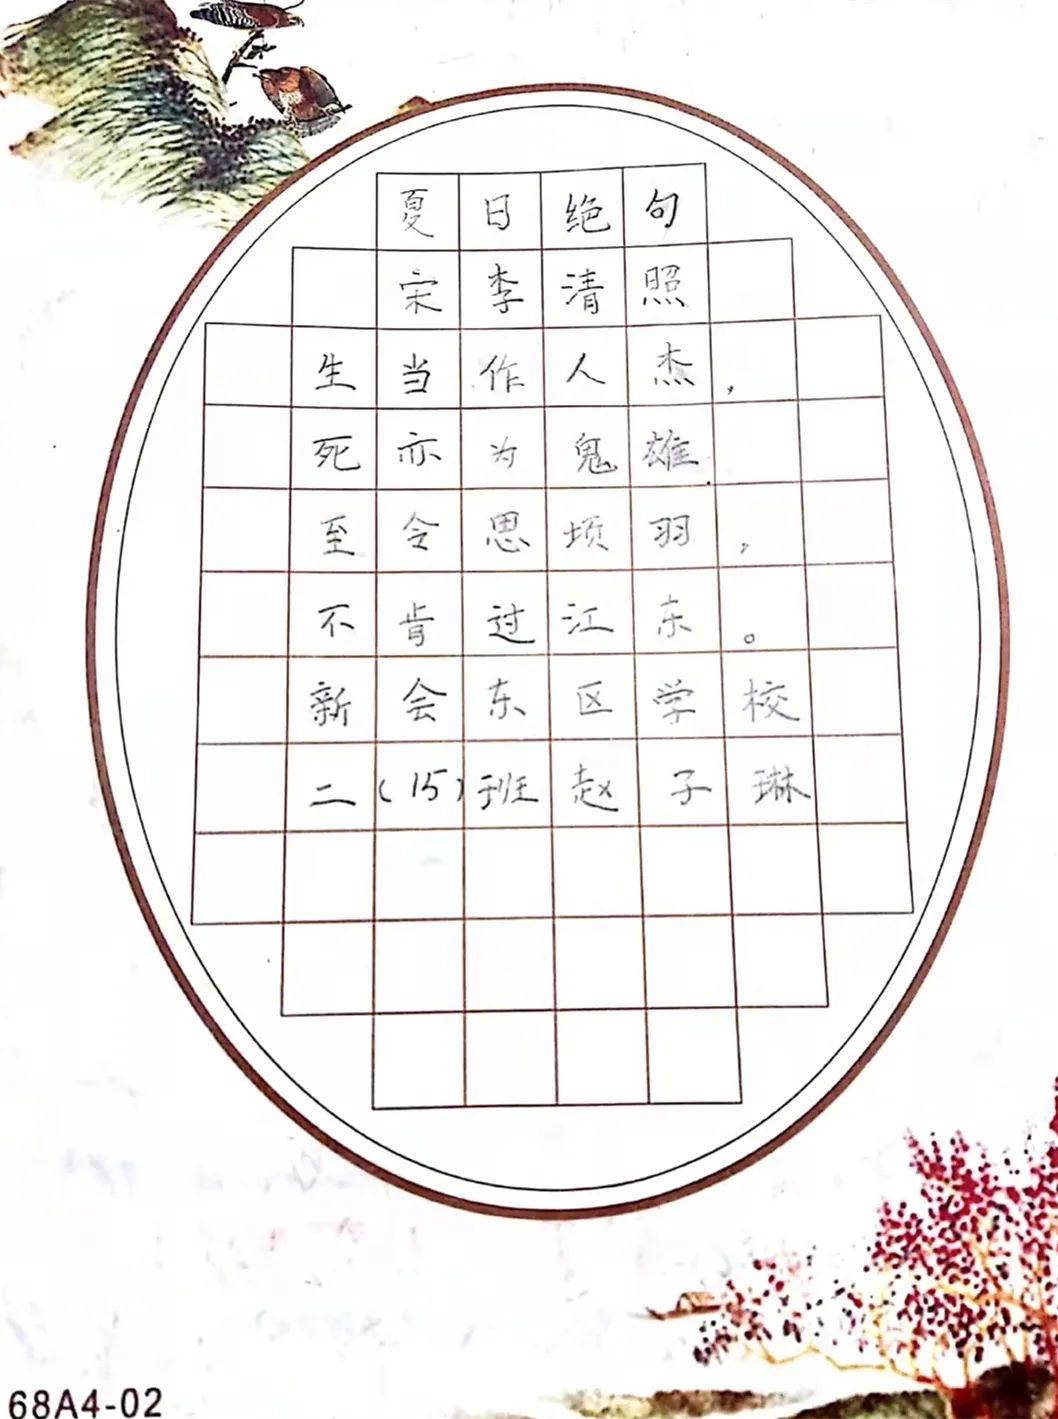 夏日绝句
宋李清照
生当作人杰，
死亦为鬼雄.
至令思项羽，
不肯过江东。
新会东区学校
二(15)班赵子琳
68A4-02